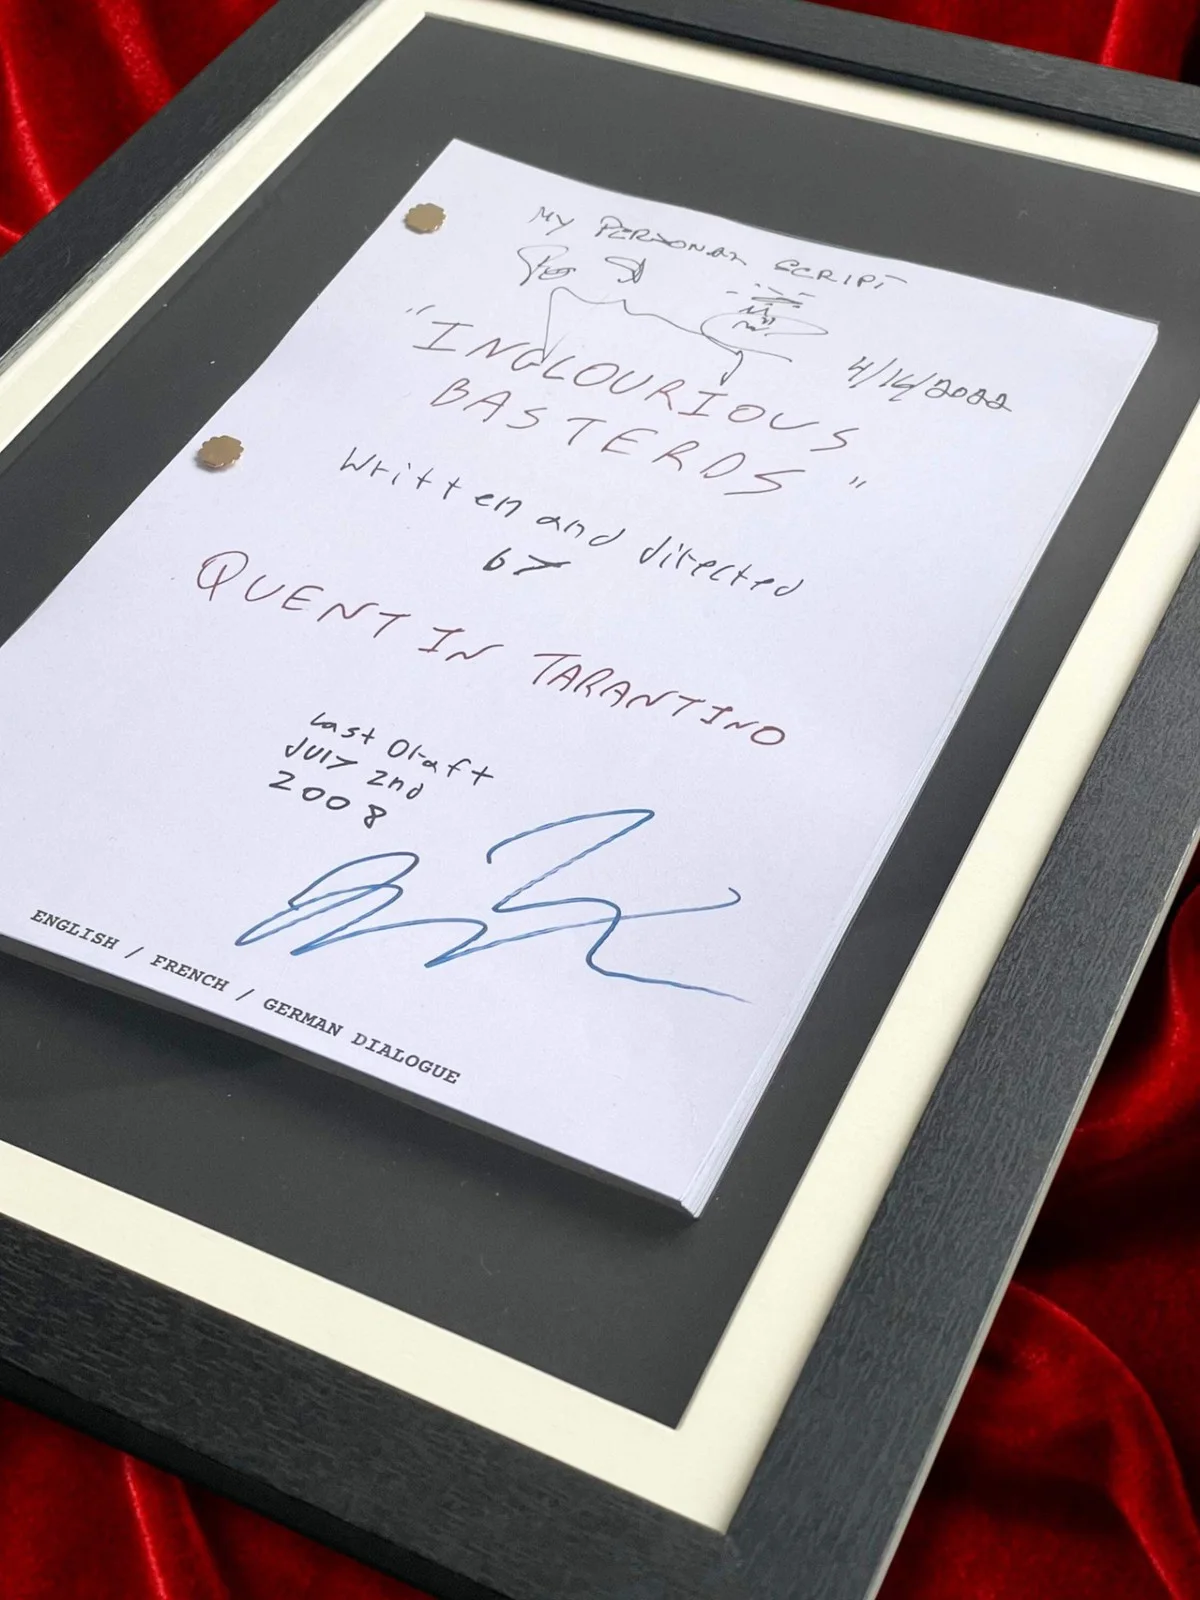 MY PERSONAL SCRIPT
4/16/2022
"INGLOURIOUS
BASTERDS"
Written and directed
by
QUENTIN TARANTINO
Last Draft
JULY 2nd
2008
ENGLISH / FRENCH / GERMAN DIALOGUE